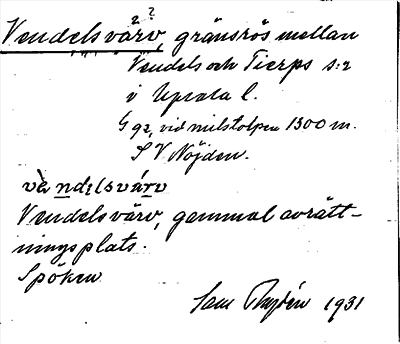 Vendelsvärv, gränsrös mellan
Vendels och Tierps s:r
i Upsala l.
G 92, vid milstolpen 1300 m.
S V Nöjden.
vὲndilsvárv
Vendelsvärv, gammal avrätt-
ningsplats.
Spöken
1931